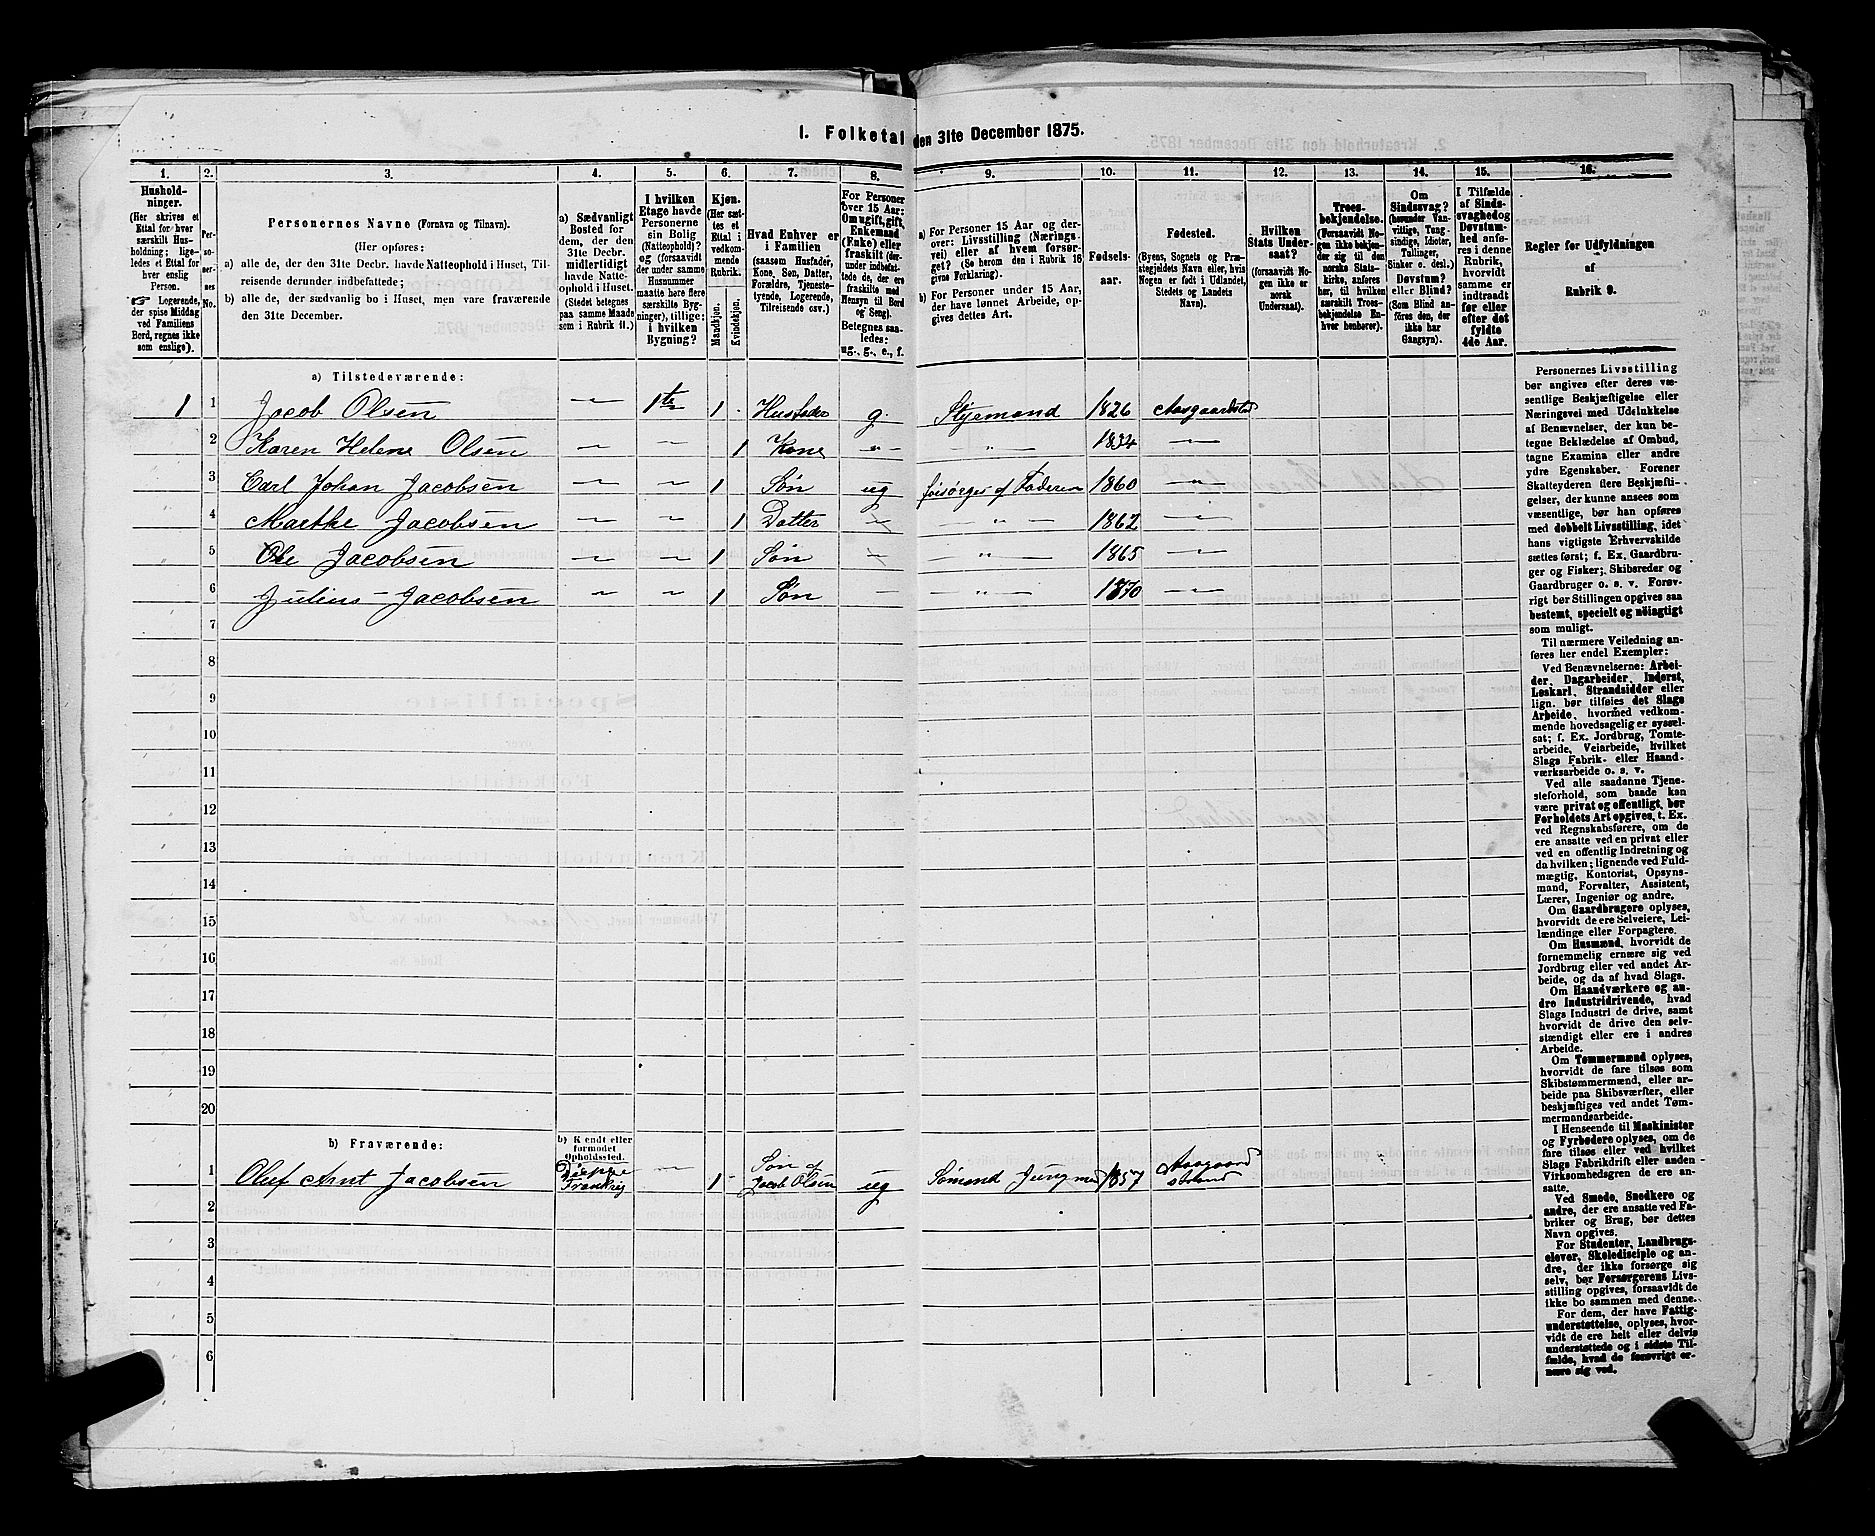 1. Folketal den 31te December 1875.
1. 2. 3. 4. 5. 6. 7. 8. 9. 10. 11. 12. 13. 14. 15. 16.
Hushold-
ninger.
(Her skrives et
Ettal for hver
særskilt Hus-
holdning; lige-
ledes et Ettal for
hver enslig
Person.
☞ Logerende,
der spise Middag
ved Familiens
Bord, regnes ikke
som enslige).
Per-
so-
ner-
nes
No.
Personernes Navne (Fornavn og Tilnavn).
(Her opføres:
a) alle de, der den 31te Decbr. havde Natteophold i Huset, Til-
reisende derunder indbefattede;
b) alle de, der sædvanlig bo i Huset, men vare fraværende
den 31te December.
a) Sædvanligt
Bosted for
dem, der den
31te Decbr.
midlertidigt
havde Natte-
ophold i Huset.
(Stedet betegnes
paa samme Maade
som i Rubrik 11.)
I hvilken
Etage havde
Personerne
sin Bolig
(Natteophold)?
og (forsaavidt
der under samme
Husnummer
maatte høre flere
særskilte Byg-
ninger), tillige:
i hvilken
Bygning?
Kjøn.
(Her sæt-
tes et
Ettal i
vedkom-
mende
Rubrik.
Mandkjøn.
Kvindekjøn.
Hvad Enhver er
i Familien
(saasom Husfader,
Kone, Søn, Datter,
Forældre, Tjeneste-
tyende, Logerende,
Tilreisende osv.)
For Personer
over 15 Aar:
Om ugift, gift,
Enkemand
(Enke) eller
fraskilt (der-
under indbefat-
tede de, der ere
fraskilte med
Hensyn til Bord
og Seng).
Betegnes saa-
ledes:
ug., g., e., f.
a) For Personer 15 Aar og der-
over: Livsstilling (Nærings-
vei) eller af hvem forsør-
get? (Se herom den i Rubrik 16
givne Forklaring).
b) For Personer under 15 Aar,
der have lønnet Arbeide, op-
gives dettes Art.
Fødsels-
aar.
Fødested.
(Byens, Sognets og Præ-
stegjeldets Navn eller, hvis
Nogen er født i Udlandet,
Stedets og Landets
Navn).
Hvilken
Stats Under-
saat?
(forsaavidt No-
gen ikke er
norsk
Undersaat).
Troes-
bekjendelse.
(Forsaavidt No-
gen ikke bekjen-
der sig til den
norske Stats-
kirke, anføres
her, til hvilken
særskilt Troes-
bekjendelse En-
hver henhører).
Om
Sindssvag?
(herunder Van-
vittige, Tung-
sindige, Idioter,
Tullinger,
Sinker o. desl.)
Døvstum?
eller Blind?
(Som Blind an-
føres den, der
ikke har
Gangsyn).
I Tilfælde
af Sinds-
svaghed og
Døvstum-
hed anfø-
res i denne
Rubrik,
hvorvidt
samme er
indtraadt
før eller
efter det
fyldte
4de Aar.
Regler for Udfyldningen
af
Rubrik 9.
a) Tilstedeværende:
1 1 Jacob Olsen — 1te 1 Husfader g. Styrmand 1826 Aasgaardstrd
2 Karen Helene Olsen — — 1 Kone " — " — 1834 — " —
3 Carl Johan Jacobsen — — 1 Søn ug forsørges af Faderen 1860 — " —
4 Marthe Jacobsen — — 1 Datter — " — 1862 — " —
5 Ole Jacobsen — — 1 Søn — " — 1865 — " —
6 Julius Jacobsen — — 1 Søn — — " — 1870 — " —
7
8
9
10
11
12
13
14
15
16
17
18
19
20
b) Fraværende:
b) Kjendt eller
formodet
Opholdssted.
1 Oluf Arnt Jacobsen Dieppe Frankrig — 1 Søn af Jacob Olsen ug Sømand Jungman 1857 Aasgaardstrand
2
3
4
5
6
Personernes Livsstilling
bør angives efter deres væ-
sentlige Beskjæftigelse eller
Næringsvei med Udelukkelse
af Benævnelser, der kun be-
tegne Beklædelse af Ombud,
tagne Examina eller andre
ydre Egenskaber. Forener
Skatteyderen flere Beskjæfti-
gelser, der kunne ansees som
væsentlige, bør han opføres
med dobbelt Livsstilling, idet
hans vigtigste Erhvervskilde
sættes først; f. Ex. Gaardbru-
ger og Fisker; Skibsreder og
Gaardbruger o. s. v. Forøv-
rigt bør Stillingen opgives saa
bestemt, specielt og nøiagtigt
som muligt.
Til nærmere Veiledning an-
føres her endel Exempler:
Ved Benævnelserne: Arbei-
der, Dagarbeider, Inderst,
Løskarl, Strandsidder eller
lign. bør tilføies det Slags
Arbeide, hvormed vedkom-
mende hovedsagelig er syssel-
sat; f. Ex. Jordbrug, Tomte-
arbeide, Veiarbeide, hvilket
Slags Fabrik- eller Haand-
værksarbeide o. s. v.
Ved alle saadanne Tjene-
steforhold, som baade kan
være privat og offentligt, bør
Forholdets Art opgives, t. Ex.
ved Regnskabsførere, om de
ere ansatte ved en privat eller
ved en offentlig Indretning og
da hvilken; lignende ved Fuld-
mægtig, Kontorist, Opsyns-
mand, Forvalter, Assistent,
Lærer, Ingeniør og andre.
Om Gaardbrugere oplyses,
hvorvidt de ere Selveiere, Lei-
lændinge eller Forpagtere.
Om Husmænd, hvorvidt de
fornemmelig ernære sig ved
Jordbrug eller ved andet Ar-
beide, og da af hvad Slags.
Om Haandværkere og an-
dre Industridrivende, hvad
Slags Industri de drive, samt
hvorvidt de drive den selv-
stændigt eller ere i andres
Arbeide.
Om Tømmermænd oplyses,
hvorvidt de fare tilsøs som
Skibstømmermænd, eller ar-
beide paa Skibsværfter, eller
beskjæftiges ved andet Tøm-
mermandsarbeide.
I Henseende til Maskinister
og Fyrbødere oplyses, om de
fare tilsøs eller ved hvilket
Slags Fabrikdrift eller anden
Virksomhedsgren de ere an-
satte.
Ved Smede, Snedkere og
andre, der ere ansatte ved Fa-
briker og Brug, bør dettes
Navn opgives.
For Studenter, Landbrugs-
elever, Skoledisciple og an-
dre, der ikke forsørge sig
selv, bør Forsørgerens Livs-
stilling opgives, forsaavidt de
ikke bo sammen med denne.
For dem, der have Fattig-
understøttelse, oplyses, hvor-
vidt de ere helt eller delvis
understøttede og i sidste Til-
fælde, hvad de forøvrigt er-
nære sig ved.